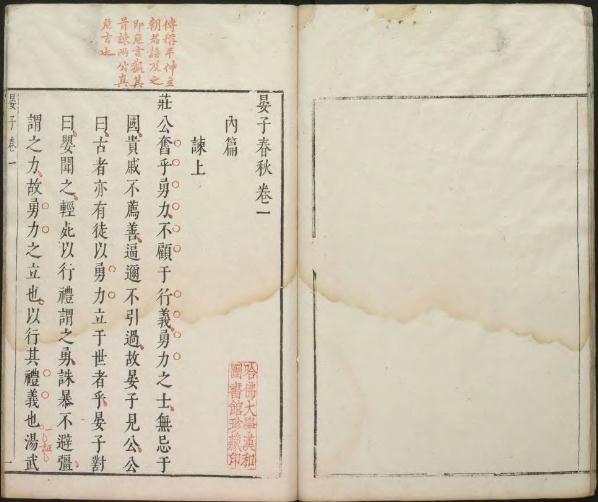 傳稱平仲立
朝君語及之
即危言觀其
首諫兩公真
危言也
晏子春秋卷一
內篇
諫上
莊公奮乎勇力不顧于行義勇力之士無忌于
國貴戚不薦善逼邇不引過故晏子見公公
曰古者亦有徒以勇力立于世者乎晏子對
曰嬰聞之輕死以行禮謂之勇誅暴不避彊
謂之力故勇力之立也以行其禮義也湯武
晏子卷一
一
哈佛大學漢和
圖書館珍藏印